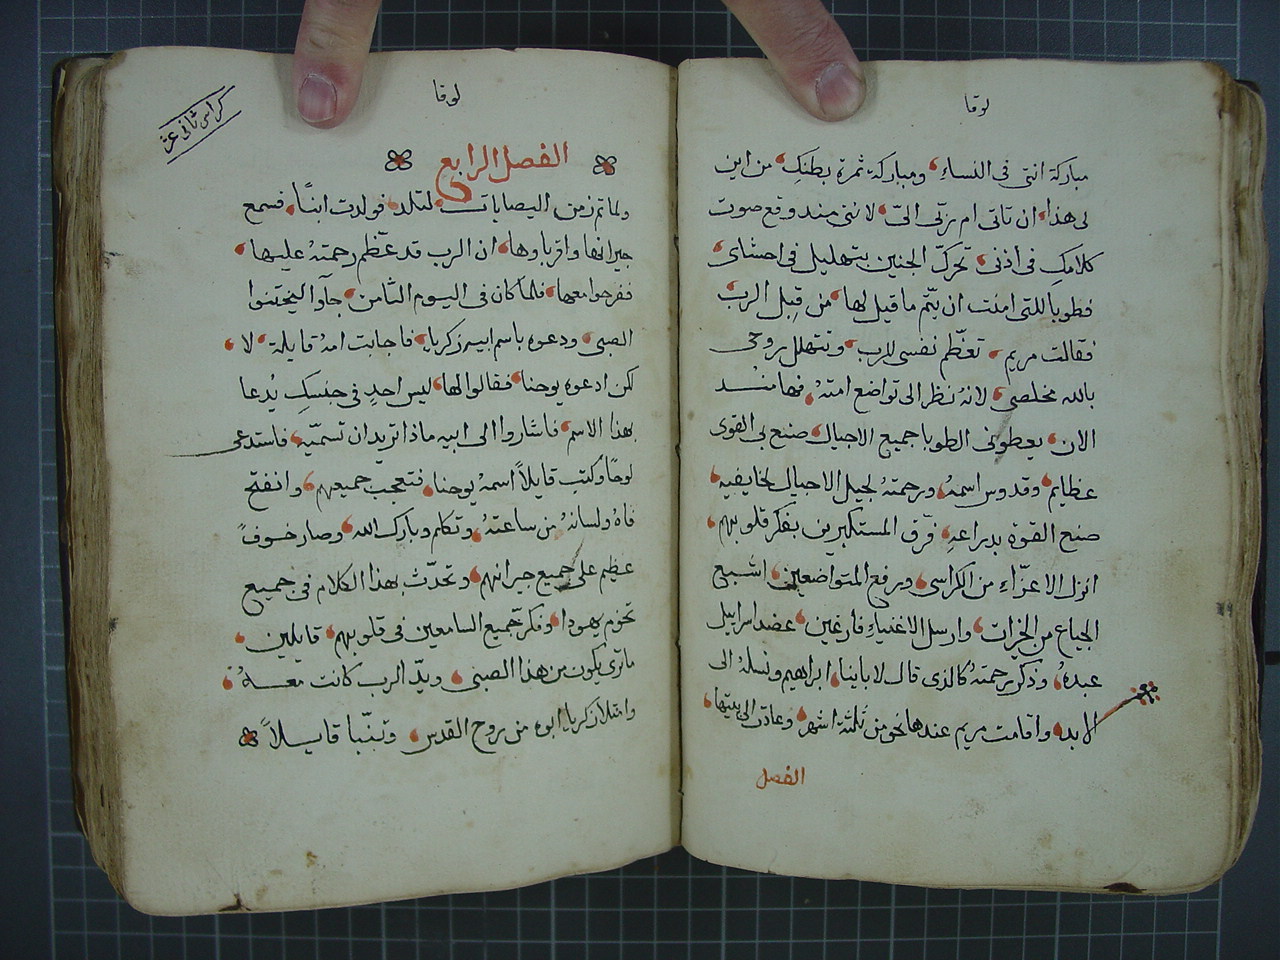 لوقا
مباركة انتي في النساءِ ومباركة ثمرة بطنكِ من اين
لي هذا ان تاتي ام ربّي اليّ لانني منذ وقع صوت
كلامكِ في اذنيّ تحركّ الجنين بتهليل في احشاي
فطوبا للتي امنت ان يتّم ما قيل لها من قِبل الربّ
فقالت مريم تعظّم نفسي للرب وتتهلل روحي
بالله مخلصي لانهُ نظر الى تواضع امتهُ فها منـــذ
الان يعطوني الطوبا جميع الاجيال صنع بي القوى
عظايم وقدوس اسمهُ ورحمتهُ لجيل الاجيال لخايفيه
صنع القوة بدراعهِ فرّق المستكبرين بفكر قلوبهم
انزل الاعزّاء من الكراسي ورفع المتواضعين اشبع
الجياع من الخيرات وارسل الاغنياء فارغين عضد اسراييل
عبدهُ وذكر رحمتهُ كالذي قال لاباينا ابراهيم ونسلهُ الى
الابد واقامت مريم عندها نحو من ثلثة اشهر وعادت الى بيتها
الفصل
لوقا
كراس ثاني عشر
الفصل الرابع
ولما تم زمن اليصابات لتلد فولدت ابنًا فسمع
جيرانها واقرباوها ان الرب قد عظّم رحمتهُ عليها
ففرحوا معها فلمّا كان في اليوم الثامن جآوا ليختنوا
الصبي ودعوه باسم ابيه زكريا فاجابت امهُ قايلة لا
لكن ادعوه يوحنا فقالوا لها ليس احدٍ في جنسكِ يُدعا
بهذا الاسم فاشاروا الى ابيه ماذا تريد ان تسمّيه فاستدعى
لوحًا وكتب قايلاً اسمهُ يوحنا فتعجب جميعهم وانفتح
فاهُ ولسانهُ من ساعتهُ وتكلم وبارك الله وصار خـوفً
عظيم على جميع جيرانهم وتحدّث بهذا الكلام في جميع
تخوم يهودا وفكر جميع السامعين في قلوبهم قايلين
ماترى يكون من هذا الصبي ويدّ الرب كانت معــهُ
وامتلا زكريا ابوه من روح القدس وتنبّا قايــلاً